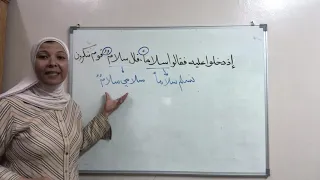 إذ دخلوا عليه فقالوا سلاماً، قال سلامٌ قوم منكرون
نسلم سلاماً سلامي سلامٌ